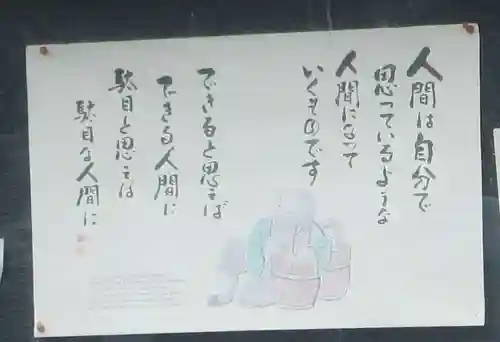 人間は自分で
思っているような
人間になって
いくものです
できると思えば
できる人間に
駄目と思えば
駄目な人間に